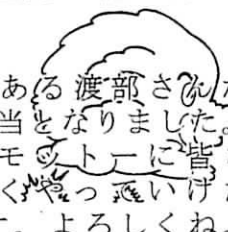 ある渡部さんが
当となりました。
モットーに皆
くやっていけた
よろしくね